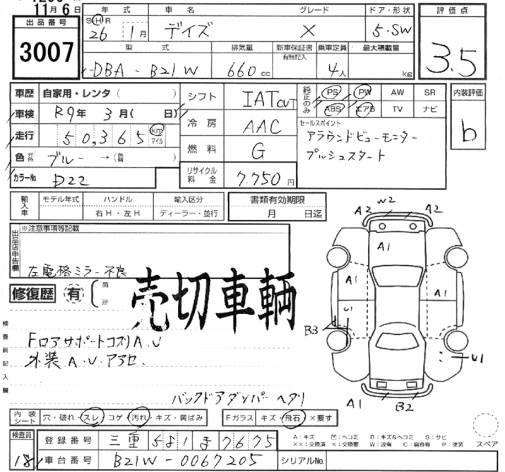 11月6日
出品番号 3007
年式 車名 グレード ドア・形状 評価点
S H R 26 1月 デイズ X 5・SW 3.5
型式 排気量 新車保証書 乗車定員 最大積載量
有無記入
DBA-B21W 660cc 4人 kg
車歴 自家用・レンタ( ) シフト IAT CVT PS PW AW SR 内装評価
車検 R9年 3月( 日) ABS エアB TV ナビ b
走行 50,365 km マイル 冷房 AAC セールスポイント
アラウンドビューモニター
色 ブルー→( ) 燃料 G プッシュスタート
カラーNo. B22 リサイクル料金 7,750円
輸入車 モデル年式 ハンドル 輸入区分 書類有効期限
右H・左H ディーラー・並行 月 日迄
※注意事項等記載
左電格ミラー不良
修復歴 有
売切車輌
FロアサポートコスリA.U
外装A.U.アラセ.
バックドアダンパーヘタリ
A2 W2 A2
A1
A1 A1
B3 U1
A1
A1 B2
内装シート 穴・破れ・スレ コゲ 汚れ・キズ・黄ばみ Fガラス キズ・飛石 ×要す
検査員 18 登録番号 三重 581 ま 7675
車台番号 B21W-0067205 シリアルNo.
A:キズ U:ヘコミ B:キズ&ヘコミ S:サビ
スペア